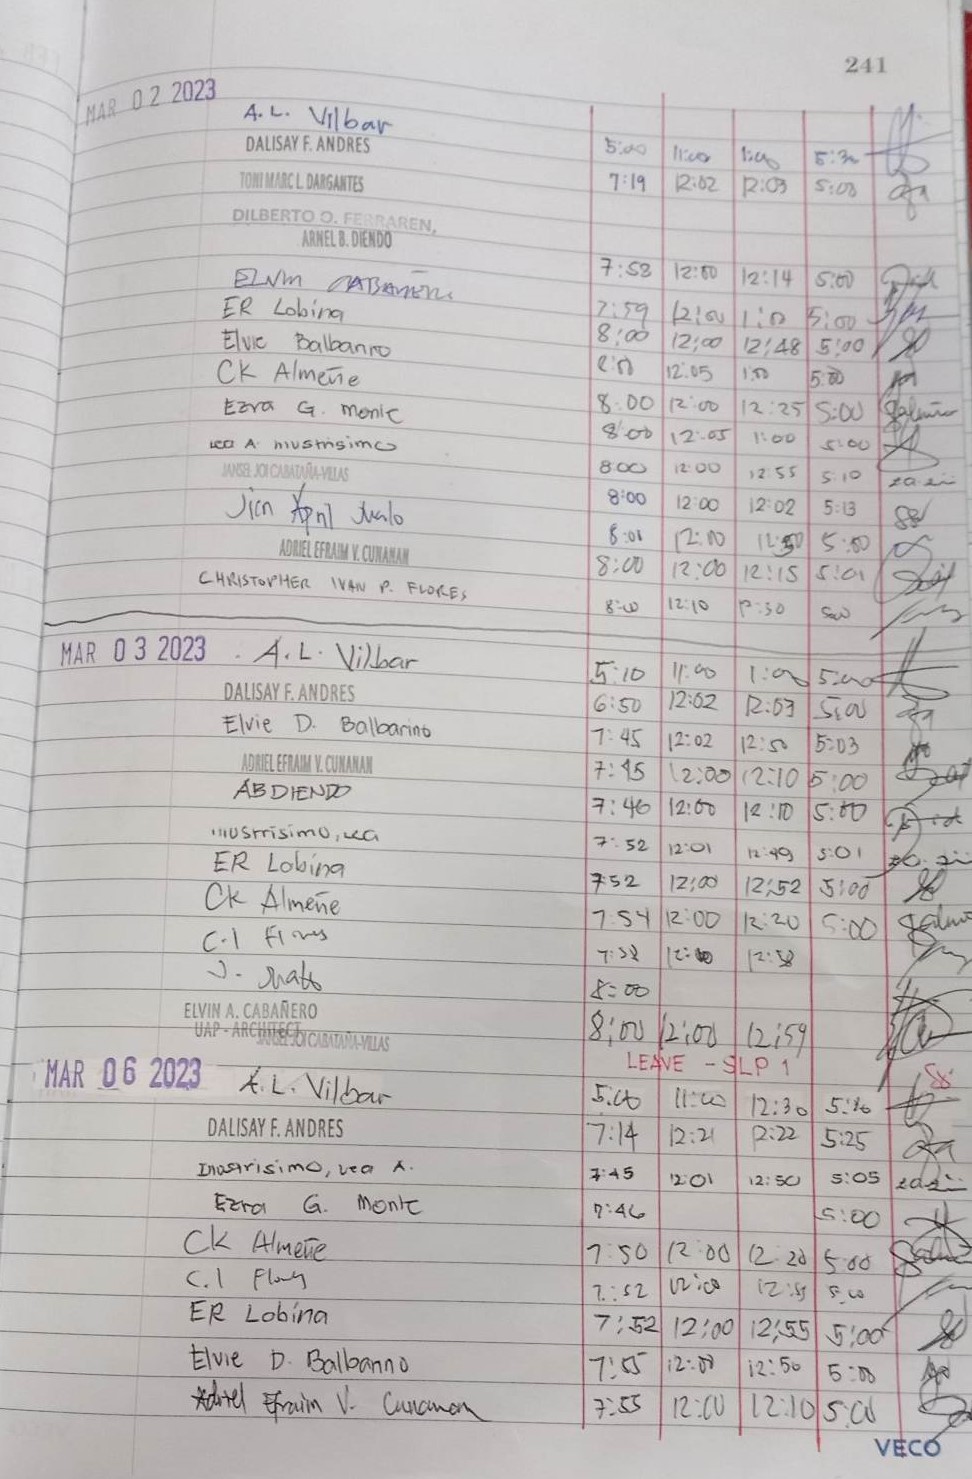 241
MAR 02 2023
A.L. Vilbar 5:00 11:00 1:00 5:30
DALISAY F. ANDRES 7:19 12:02 12:03 5:00
TONI MARC L. DARGANTES
DILBERTO O. FERRAREN,
ARNEL B. DIENDO 7:58 12:00 12:14 5:00
ELVIN CABAÑERO 7:59 12:00 1:00 5:00
ER Lobina 8:00 12:00 12:48 5:00
Elvie Balbarino 8:00 12:05 1:00 5:00
CK Almeñe 8:00 12:00 12:25 5:00
Ezra G. Monte 8:00 12:05 1:00 5:00
Lea A. Mustrisimo 8:00 12:00 12:55 5:10
JANSEL JOI CABATAÑA-VILLAS 8:00 12:00 12:02 5:13
April 8:01 12:00 5:00
ADRIEL EFRAIM V. CUNANAN 8:00 12:00 12:15 5:01
CHRISTOPHER IVAN P. FLORES 8:00 12:10 12:30 5:00
MAR 03 2023 A.L. Vilbar 5:10 11:00 1:00 5:00
DALISAY F. ANDRES 6:50 12:02 12:03 5:00
Elvie D. Balbarino 7:45 12:02 12:50 5:03
ADRIEL EFRAIM V. CUNANAN 7:45 12:00 12:10 5:00
ABDIENDO 7:46 12:00 12:10 5:00
Mustrisimo, Lea 7:52 12:01 12:49 5:01
ER Lobina 7:52 12:00 12:52 5:00
CK Almeñe 7:54 12:00 12:20 5:00
C.I Flores 7:58 12:00 12:58
J. 8:00
ELVIN A. CABAÑERO 8:00 12:00 12:59
UAP - ARCHITECT
JANSEL JOI CABATAÑA-VILLAS LEAVE - SLP 1
MAR 06 2023 A.L. Vilbar 5:00 11:00 12:30 5:30
DALISAY F. ANDRES 7:14 12:21 12:22 5:25
Mustrisimo, Lea A. 7:45 12:01 12:50 5:05
Ezra G. Monte 7:46 5:00
CK Almeñe 7:50 12:00 12:20 5:00
C.I Flores 7:52 12:00 5:00
ER Lobina 7:52 12:00 12:55 5:00
Elvie D. Balbarino 7:55 12:00 12:50 5:00
Adriel Efraim V. Cunanan 7:55 12:00 12:10 5:00
VECO